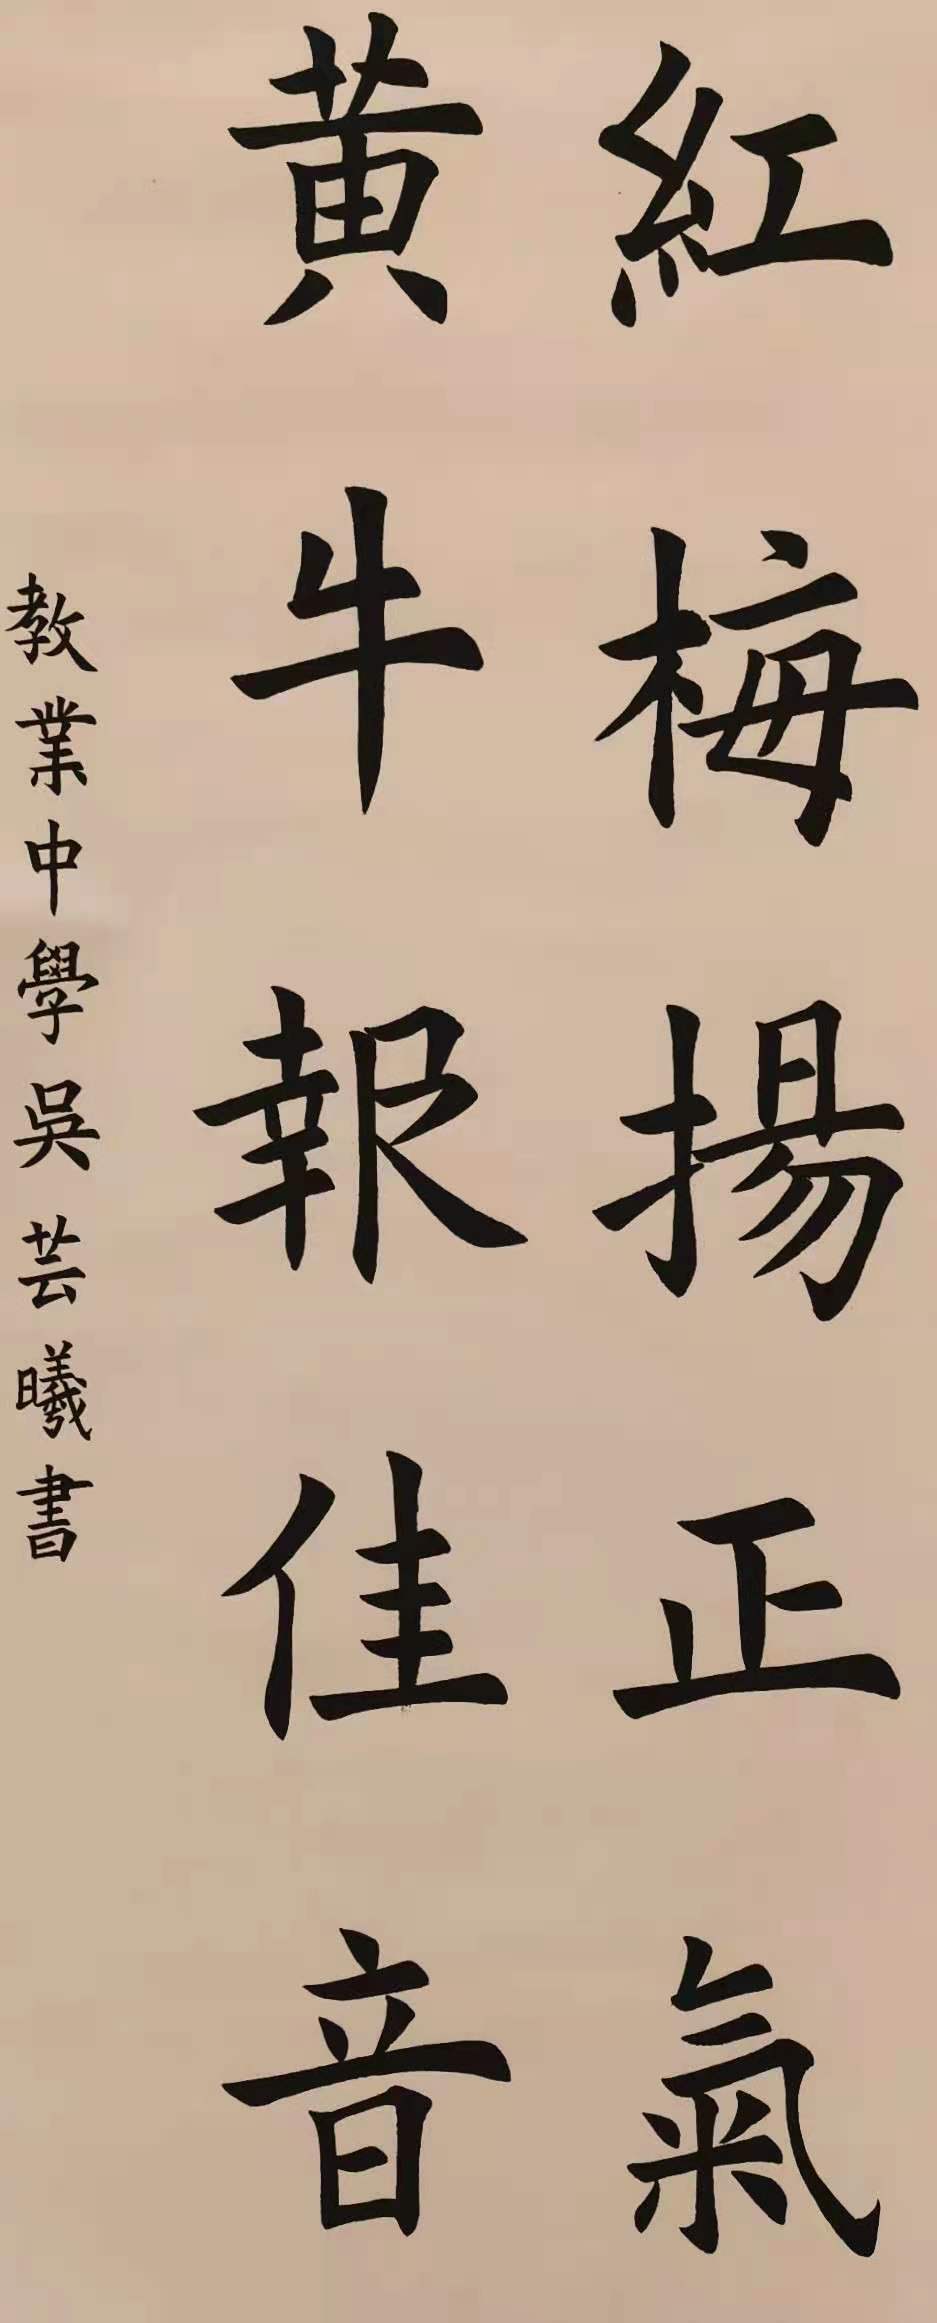 紅梅揚正氣
黄牛報佳音
教業中學吳芸曦書